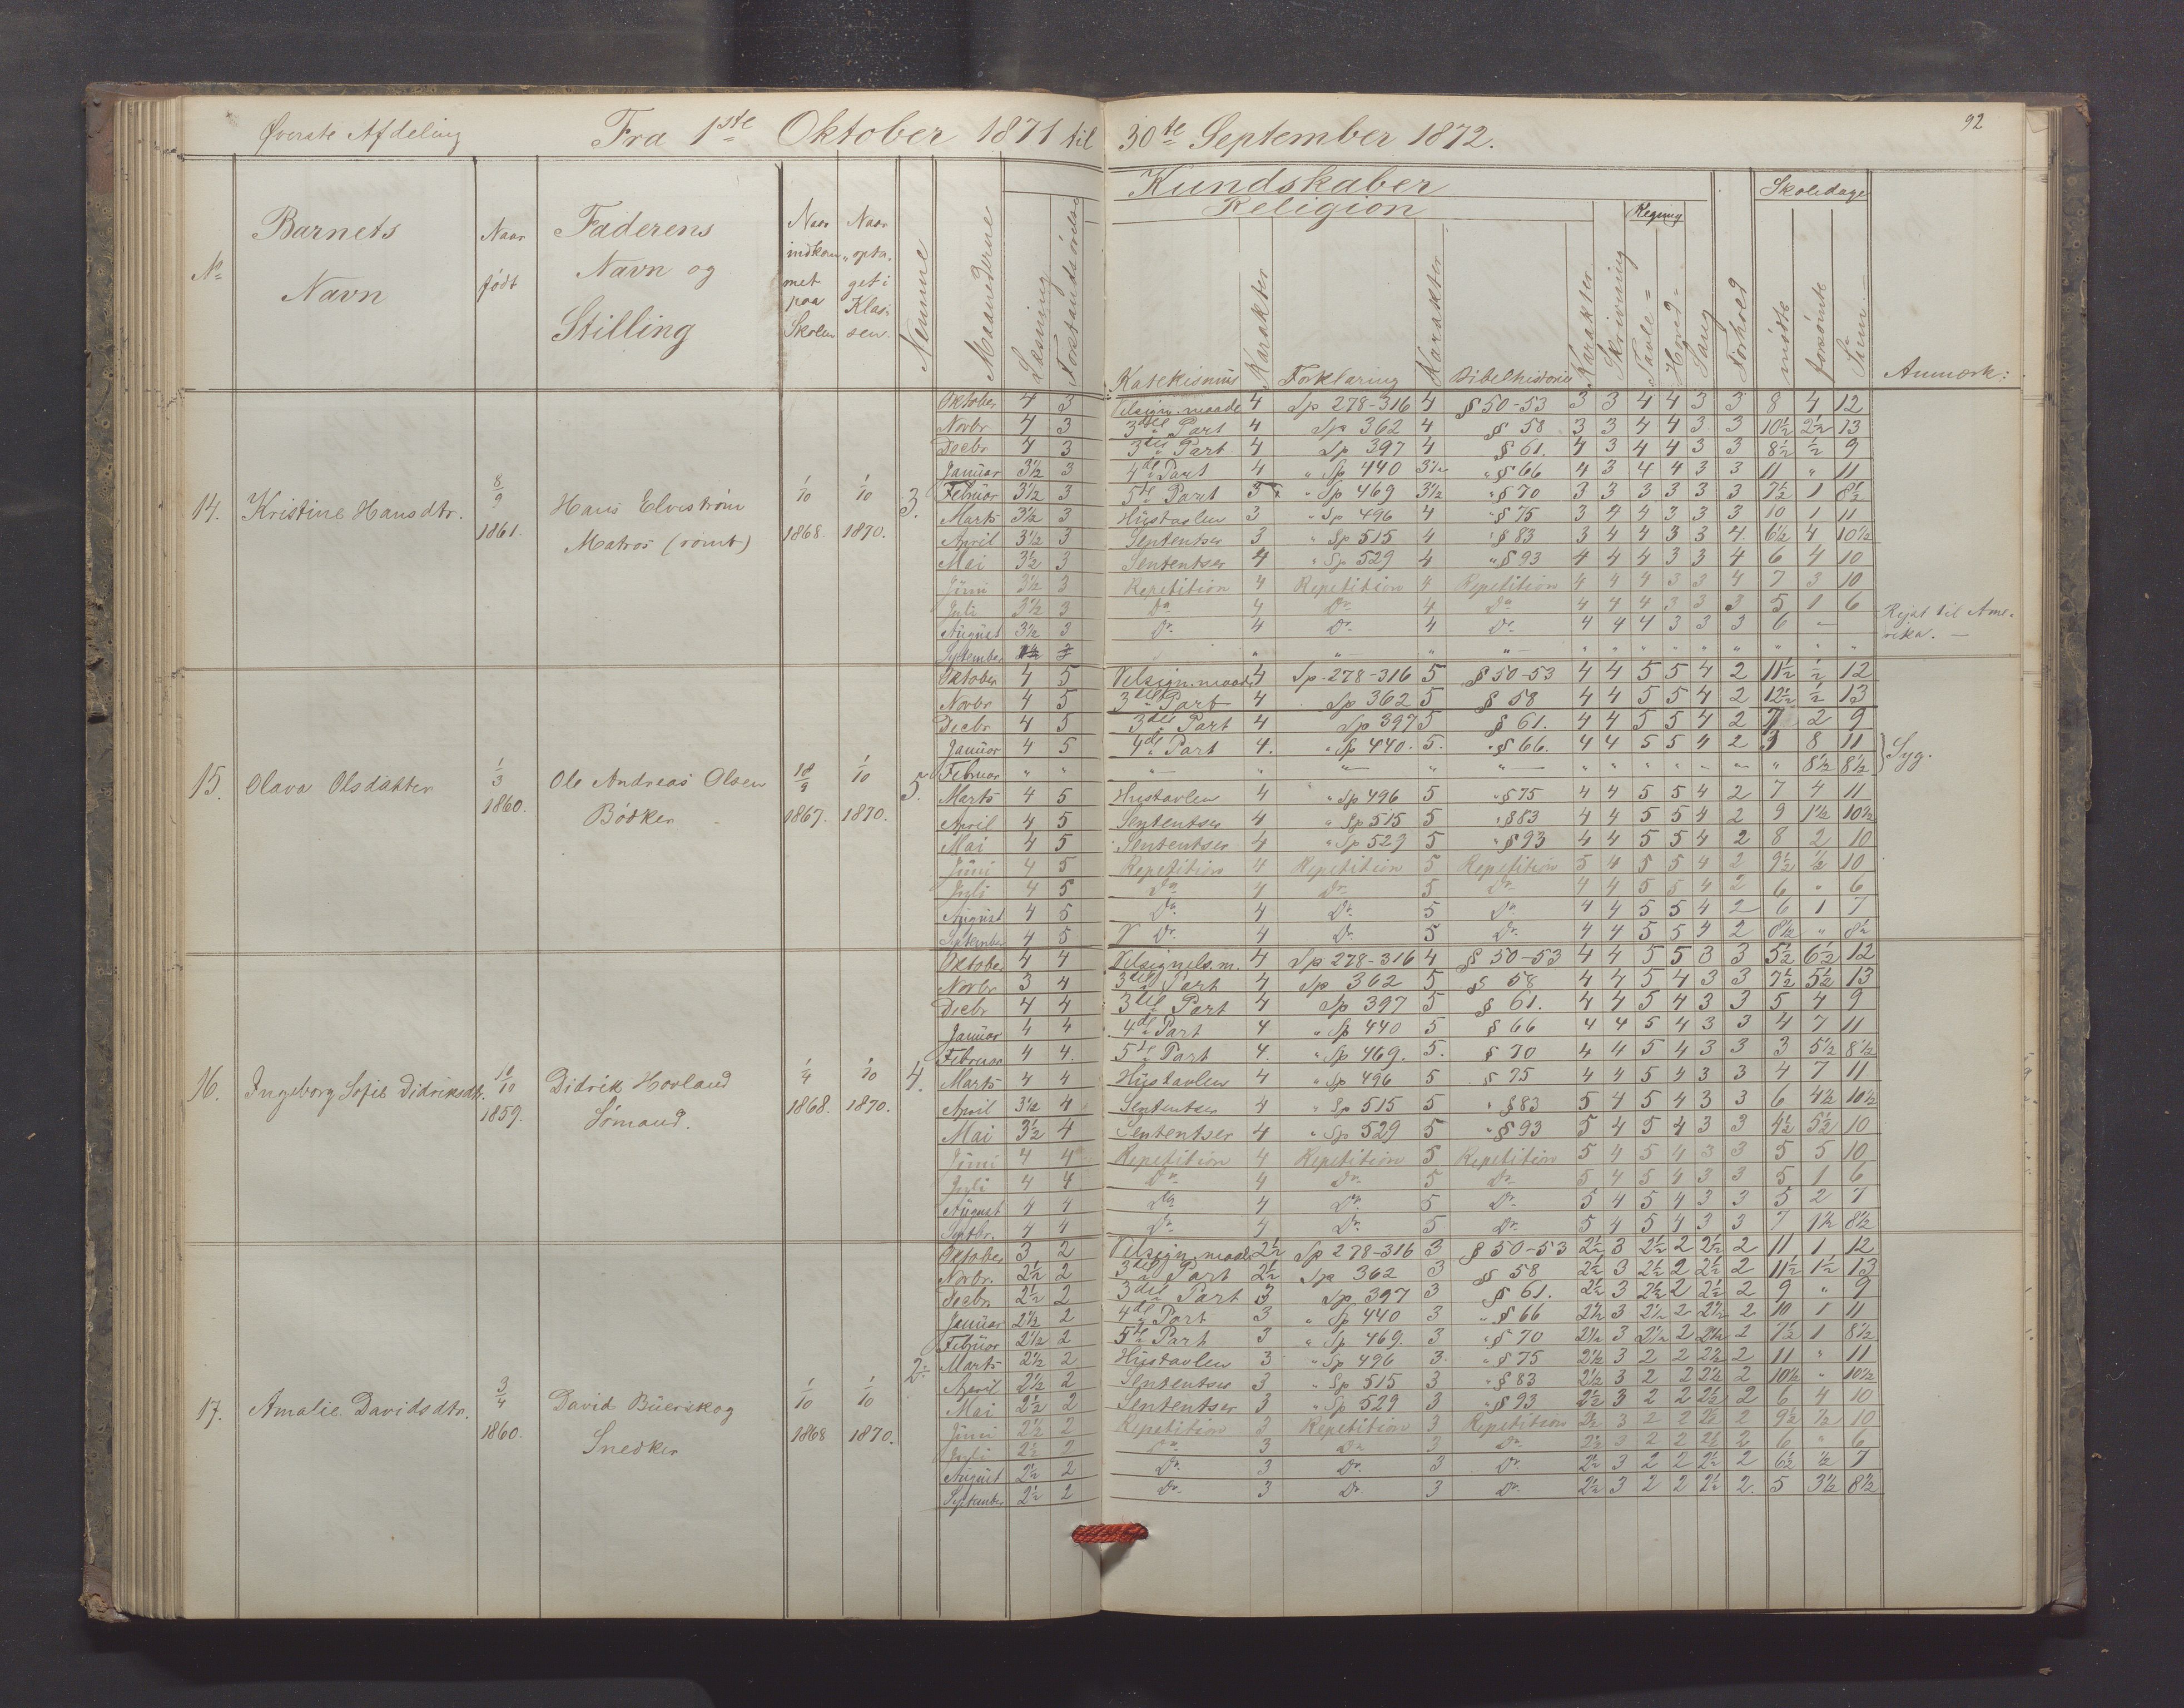 Øverste Afdeling Fra 1ste Oktober 1871 til 30te September 1872. 92
Kundskaber Skoledage
Religion Regning
No Barnets Navn Naar født Faderens Navn og Stilling Naar indkommet paa Skolen Naar optaget i Klassen Nemme Maanederne Læsning Forstandsøvelse Katekismus Karakter Forklaring Karakter Bibelhistorie Karakter Skrivning Tavle= Hoved= Sang Forhold mødte forsømte Sum Anmærk:
14. Kristine Hansdtr. 8/9 1861. Hans Elvestrøm Matros (rømt) 1/10 1868. 1/10 1870. 3.
Oktober 4 3 Velsign.maade 4 Sp 278-316 4 § 50-53 3 3 4 4 3 3 8 4 12
Novbr 4 3 3die Part 4 Sp 362 4 § 58 3 3 4 4 3 3 10½ 2½ 13
Decbr 4 3 3die Part 4 Sp 397 4 § 61. 4 3 4 4 3 3 8½ ½ 9
Januar 3½ 3 4de Part 4 " Sp 440 3½ " § 66 4 3 4 4 3 3 11 " 11
Februar 3½ 3 5te Part 3 " Sp 469 3½ " § 70 3 3 3 3 3 3 7½ 1 8½
Marts 3½ 3 Hustavlen 3 " Sp 496 4 " § 75 3 4 4 3 3 3 10 1 11
April 3½ 3 Sententser 3 " Sp 515 4 " § 83 3 4 4 3 3 4. 6½ 4 10½
Mai 3½ 3 Sententser 4 " Sp 529 4 " § 93 4 4 4 3 3 4 6 4 10
Juni 3½ 3 Repetition 4 Repetition 4 Repetition 4 4 4 3 3 4 7 3 10
Juli 3½ 3 Do 4 Do 4 Do 4 4 4 3 3 3 5 1 6 Rejst til Ame-
August 3½ 3 Do 4 Do 4 Do 4 4 4 3 3 3 6 — rika. —
September
15. Olava Olsdatter 1/3 1860. Ole Andreas Olsen Bødker 1867. 1/10 1870. 5.
Oktober 4 5 Velsign.maade 4 Sp-278-316 5 § 50-53 4 4 5 5 4 2 11½ ½ 12
Novbr 4 5 3die Part 4 Sp 362 5 § 58 4 4 5 5 4 2 12½ ½ 13
Decbr 4 5 3die Part 4 Sp 397 5 § 61. 4 4 5 5 4 2 7 2 9
Januar 4 5 4de Part 4. " Sp 440. 5. " § 66. 4 4 5 5 4 2 3 8 11 } Syg.
Februar " " " — " " — " " — " " " " " — " 8½ 8½
Marts 4 5 Hustavlen 4 " Sp 496 5 " § 75 4 4 5 5 4 2 7 4 11
April 4 5 Sententser 4 " Sp 515 5 " § 83 4 4 5 5 4 2 9 1½ 10½
Mai 4 5 Sententser 4 " Sp 529 5 " § 93 4 4 5 5 4 2 8 2 10
Juni 4 5 Repetition 4 Repetition 5 Repetition 5 4 5 5 4 2 9½ ½ 10
Juli 4 5 Do 4 Do 5 Do 4 4 5 5 4 2 6 " 6
August 4 5 Do 4 Do 5 Do 4 4 5 5 4 2 6 1 7
September 4 5 Do 4 Do 5 Do 4 4 5 5 4 2 8½ " 8½
16. Ingeborg Sofie Didriksdtr. 1859. Didrik Hovland Sømand. 1/4 1868. 1/10 1870. 4.
Oktober 4 4 Velsignels.m. 4 Sp 278-316 4 § 50-53 4 4 5 5 3 3 5½ 6½ 12
Novbr 3 4 3die Part 4 Sp 362 5 § 58 4 4 5 4 3 3 7½ 5½ 13
Decbr 4 4 3die Part 4 Sp 397 5 § 61. 4 4 5 4 3 3 5 4 9
Januar 4 4 4de Part 4 " Sp 440 5 § 66 4 4 5 4 3 3 4 7 11
Februar 4 4. 5te Part 4. " Sp 469. 5. § 70 4 4 5 4 3 3 3 5½ 8½
Marts 4 4 Hustavlen 4 " Sp 496 5 § 75 4 4 5 4 3 3 4 7 11
April 3½ 4 Sententser 4 " Sp 515 5 " § 83 5 4 5 4 3 3 6 4½ 10½
Mai 3½ 4 Sententser 4 " Sp 529 5 " § 93 5 4 5 4 3 3 4½ 5½ 10
Juni 4 4 Repetition 4 Repetition 5 Repetition 5 4 5 4 3 3 5 5 10
Juli 4 4 Do 4 Do 5 Do 5 4 5 4 3 3 5 1 6
August 4 4 Do 4 Do 5 Do 5 4 5 4 3 3 5 2 7
Septbr. 4 4 Do 4 Do 5 Do 5 4 5 4 3 3 7 1½ 8½
17. Amalie Davidsdtr. 3/4 1860. David Buerskog Snedker 1/10 1868 1/10 1870. 2
Oktober 3 2 Velsign.maade 2½ Sp 278-316 3 § 50-53 2½ 3 2½ 2 2½ 2 11 1 12
Novbr. 2½ 2 3die Part 2½ Sp 362 3 § 58 2½ 3 2½ 2 2½ 2 11½ 1½ 13
Decbr 2½ 2 3die Part 3 Sp 397 3 § 61. 2½ 3 2½ 2 2½ 2 9 " 9
Januar 2½ 2 4de Part 3 " Sp 440 3 " § 66 2½ 3 2½ 2 2½ 2 10 1 11
Februar 2½ 2 5te Part 3 " Sp 469. 3 " § 70 2½ 3 2½ 2 2½ 2 7½ 1 8½
Marts 2½ 2 Hustavlen 3 " Sp 496 3. " § 75 2½ 3 2 2 2½ 2 11 " 11
April 2½ 2 Sententser 3 " Sp 515 3 " § 83 2½ 3 2 2 2½ 2 10½ " 10½
Mai 2½ 2 Sententser 3 " Sp 529 3 " § 93 2½ 3 2 2 2½ 2 6 4 10
Juni 2½ 2 Repetition 3 Repetition 3 Repetition 2½ 3 2 2 2½ 2 9½ ½ 10
Juli 2½ 2 Do 3 Do 3 Do 2½ 3 2 2 2½ 2 6 " 6
August 2½ 2 Do 3 Do 3 Do 2½ 3 2 2 2½ 2 6½ ½ 7
September 2½ 2 Do 3 Do 3 Do 2½ 3 2 2 2½ 2. 5 3½ 8½